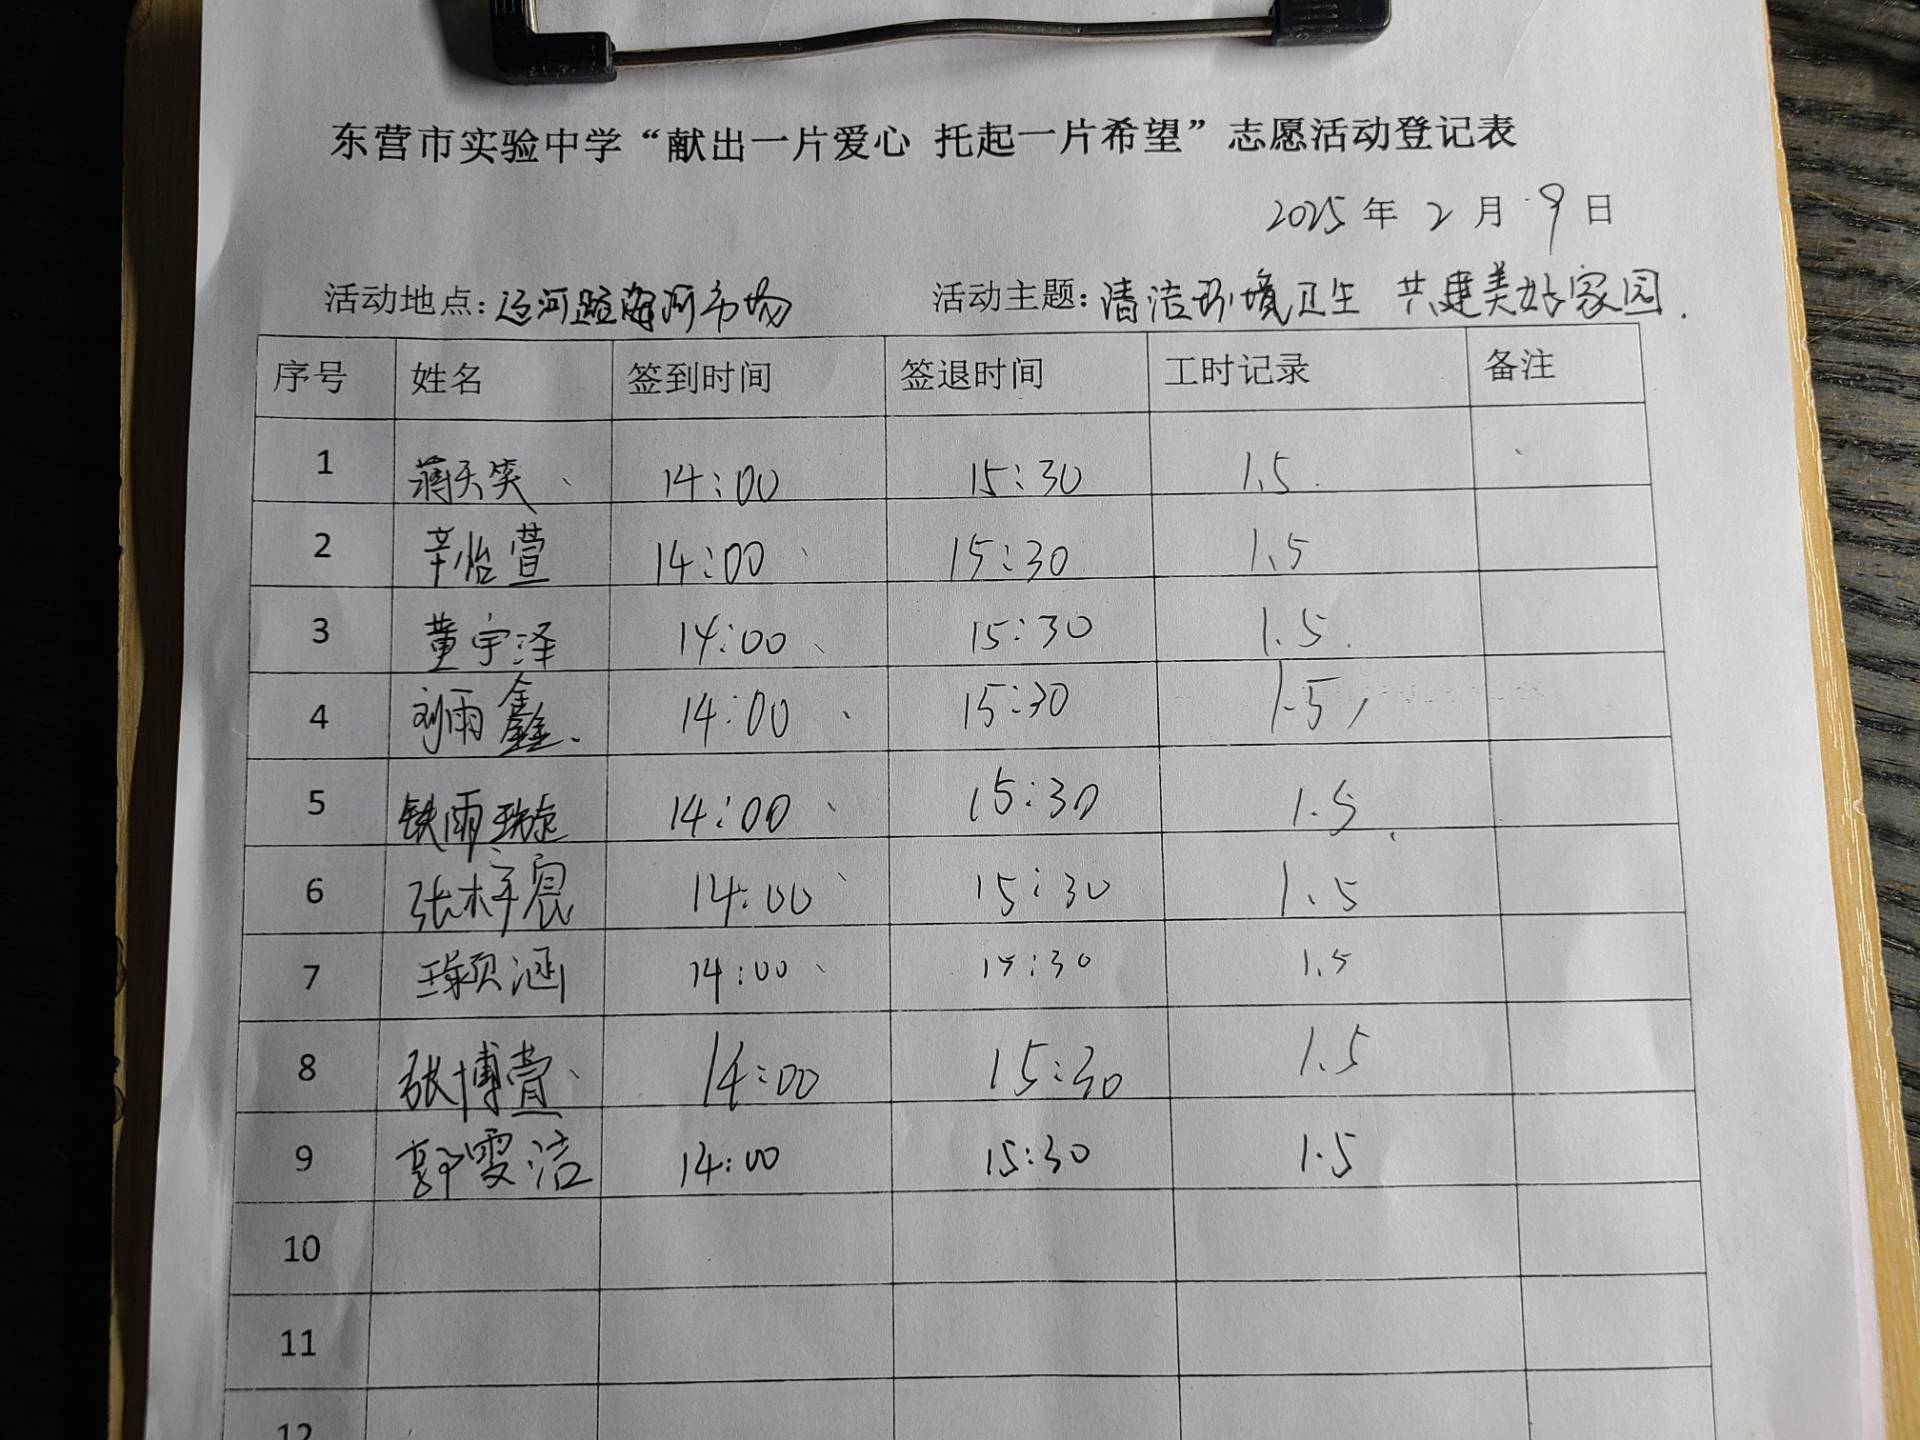 东营市实验中学“献出一片爱心 托起一片希望”志愿活动登记表
2025 年 2 月 9 日
活动地点：运河路海河市场 活动主题：清洁环境卫生 共建美好家园.
序号 姓名 签到时间 签退时间 工时记录 备注
1 蒋天笑 14:00 15:30 1.5
2 辛怡萱 14:00 15:30 1.5
3 董宇泽 14:00 15:30 1.5
4 刘雨鑫 14:00 15:30 1.5
5 铁雨璇 14:00 15:30 1.5
6 张梓宸 14:00 15:30 1.5
7 王颖涵 14:00 15:30 1.5
8 张博萱 14:00 15:30 1.5
9 郭雯洁 14:00 15:30 1.5
10
11
12